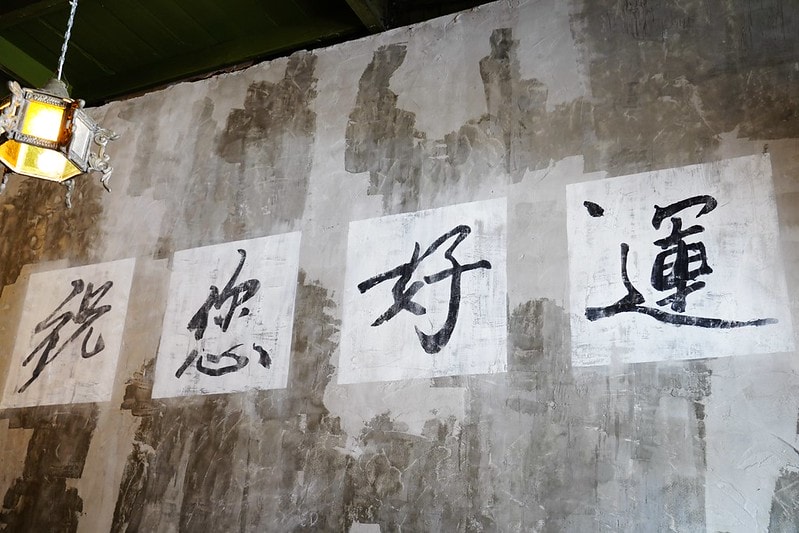 祝您好運